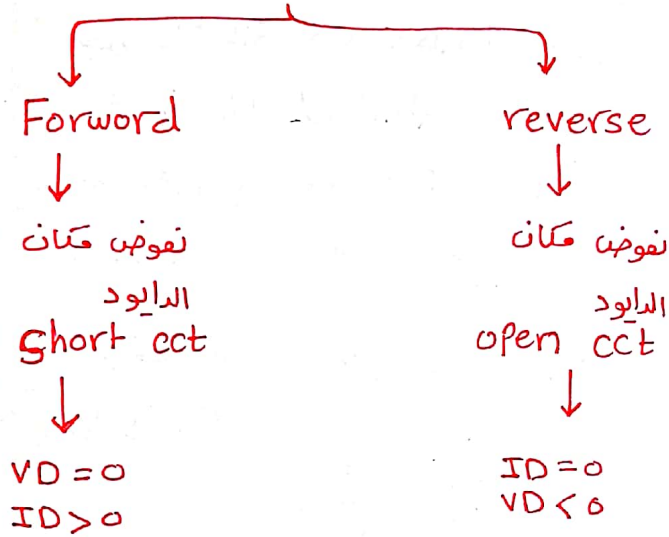 Forword
نعوض مكان
الدايود
short cct
VD = 0
ID > 0
reverse
نعوض مكان
الدايود
open cct
ID = 0
VD < 0